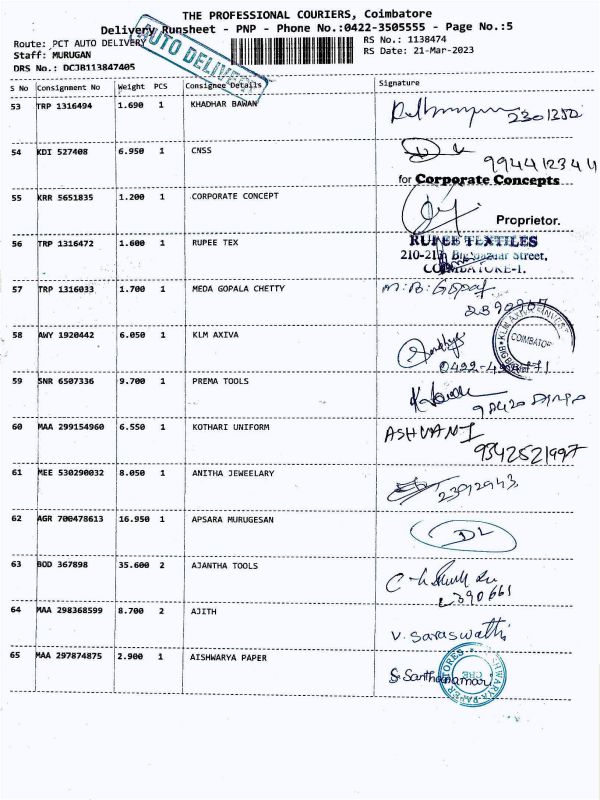 THE PROFESSIONAL COURIERS, Coimbatore
Delivery Runsheet - PNP - Phone No.:0422-3505555 - Page No.:5
Route: PCT AUTO DELIVERY
RS No.: 1138474
Staff: MURUGAN
RS Date: 21-Mar-2023
DRS No.: DCJB113847405
AUTO DELIVERY
S No Consignment No Weight PCS Consignee Details Signature
53 TRP 1316494 1.690 1 KHADHAR BAWAN
2301252
54 KDI 527408 6.950 1 CNSS
994412344
for Corporate Concepts
55 KRR 5651835 1.200 1 CORPORATE CONCEPT
Proprietor.
56 TRP 1316472 1.600 1 RUPEE TEX
RUPEE TEXTILES
210-211, Big Bazaar Street,
COIMBATORE-1.
57 TRP 1316033 1.700 1 MEDA GOPALA CHETTY
M. B. Gopal
58 AWY 1920442 6.050 1 KLM AXIVA
KLM AXIVA FINVEST
COIMBATORE
59 SNR 6507336 9.700 1 PREMA TOOLS
60 MAA 299154960 6.550 1 KOTHARI UNIFORM
ASHVANI
9342521997
61 MEE 530290032 8.050 1 ANITHA JEWEELARY
2392943
62 AGR 700478613 16.950 1 APSARA MURUGESAN
DL
63 BOD 367898 35.600 2 AJANTHA TOOLS
2390661
64 MAA 298368599 8.700 2 AJITH
V. Saraswathi
65 MAA 297874875 2.900 1 AISHWARYA PAPER
S. Santhanamari
AISHWARYA PAPER STORES
CBE